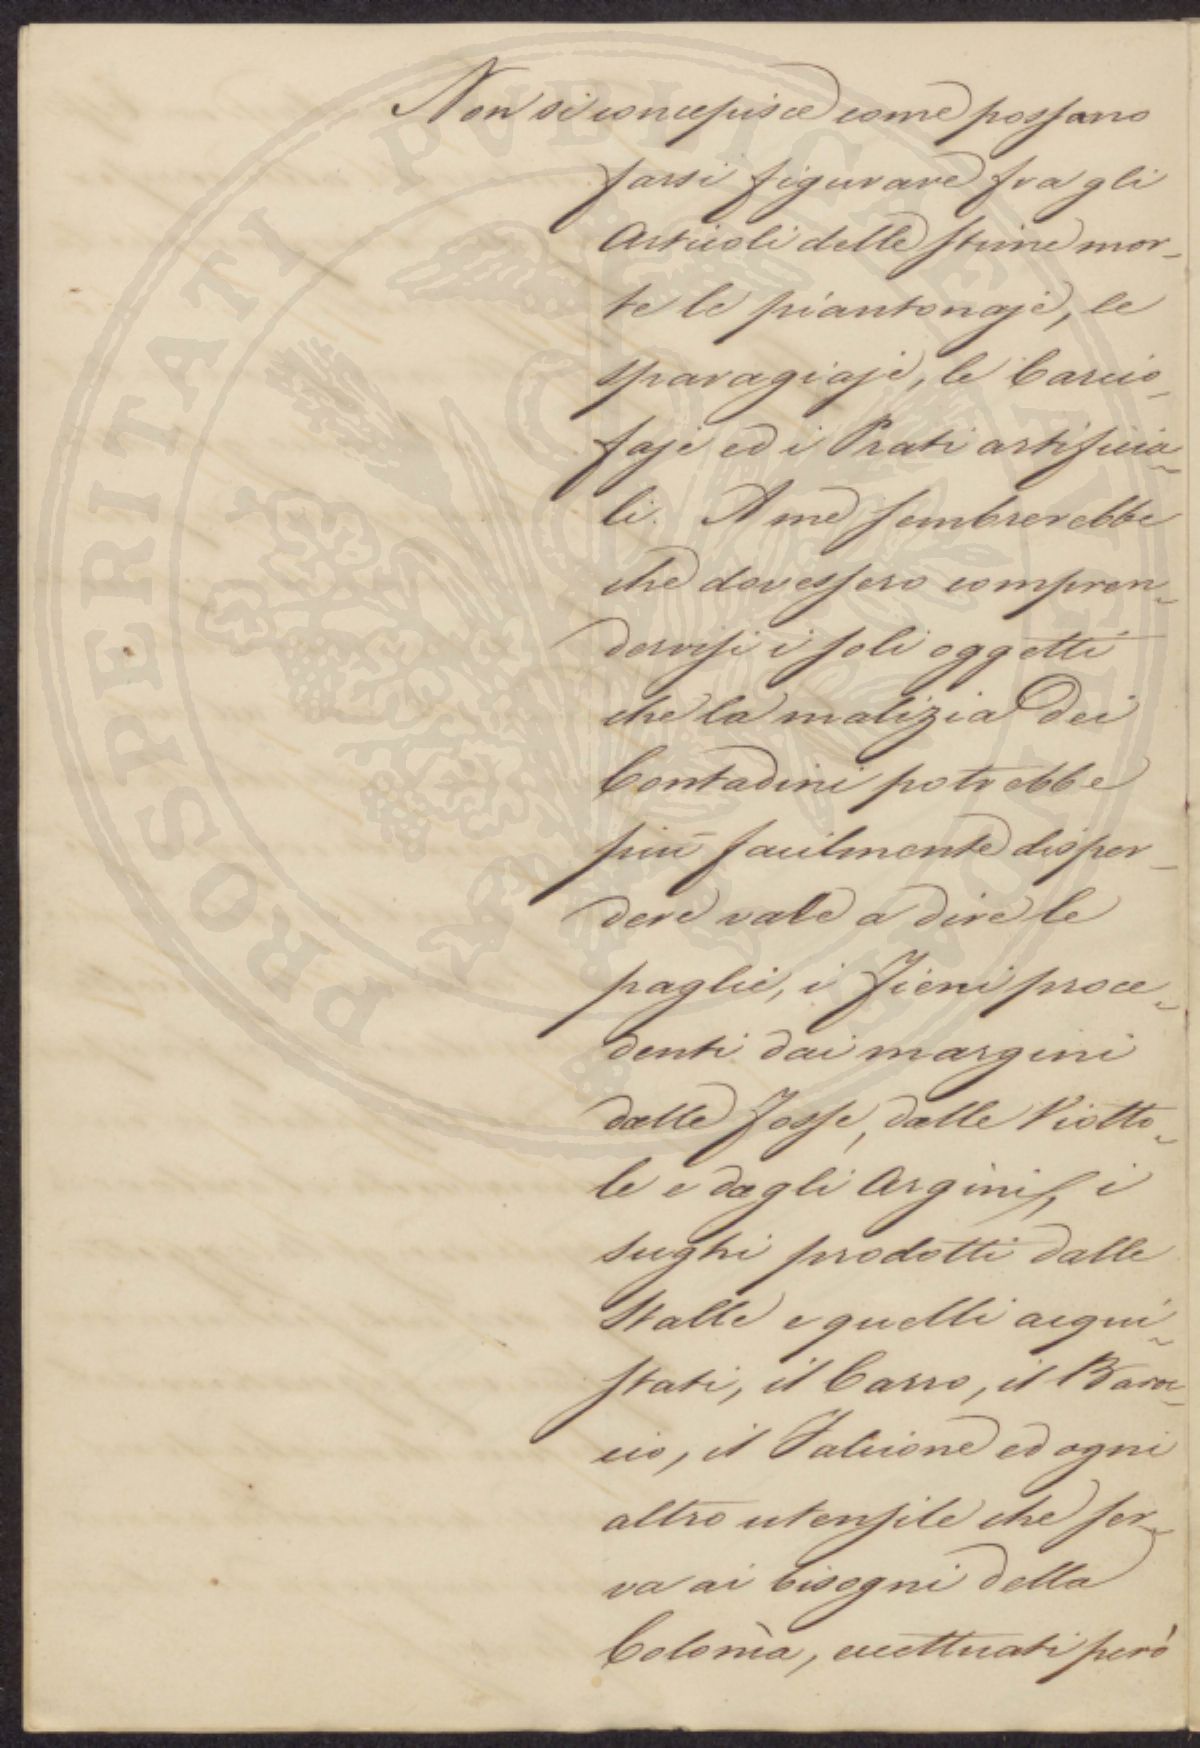 Non si concepisce come possano
farsi figurare fra gli
Articoli delle stime mor-
te le piantonaje, le
sparagiaje, le Carcio-
faje ed i Prati artificia-
li. A me sembrerebbe
che dovessero compren-
dervisi i soli oggetti
che la malizia dei
Contadini potrebbe
più facilmente disper-
dere vale a dire le
paglie, i fieni proce-
denti dai margini
delle fosse, dalle Viotto-
le e dagli Argini, i
sughi prodotti dalle
stalle e quelli acqui-
stati, il Carro, il Baroc-
cio, il Falcione ed ogni
altro utensile che ser-
va ai bisogni della
Colonìa, eccettuati però
PROSPERITATI PVBLICAE AVGENDAE